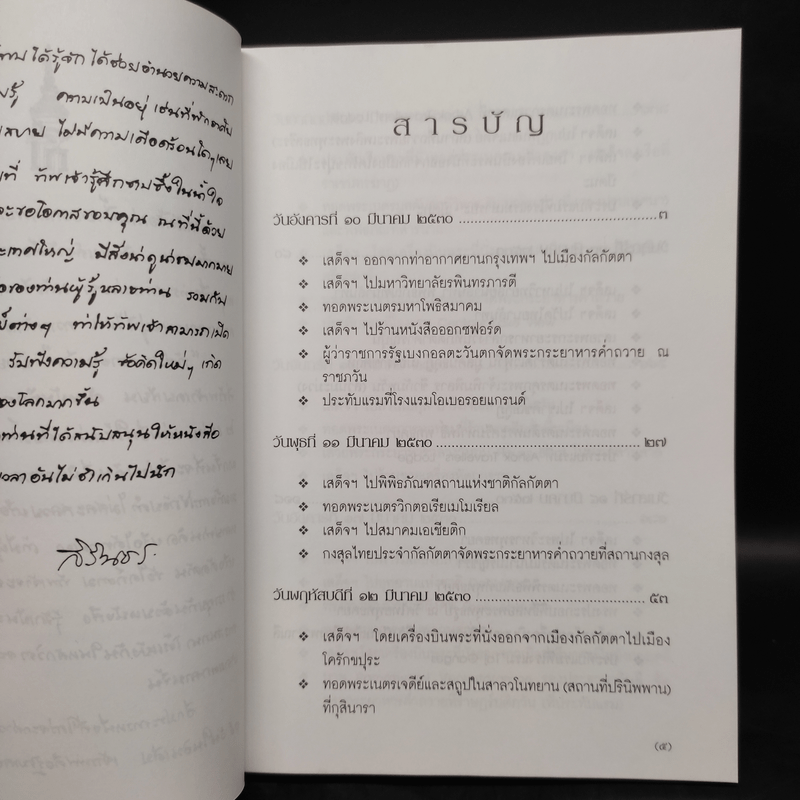 ได้รู้จัก ได้ช่วยอำนวยความสะดวก
ความเป็นอยู่ เช่นที่พักอาศัย
สบาย ไม่มีความเดือดร้อนใดๆเลย
ที่ ข้าพเจ้ารู้สึกซาบซึ้งในน้ำใจ
ขอโอกาสขอบคุณ ณ ที่นี้ด้วย
ประเทศใหญ่ มีสิ่งน่าดูน่าชมมากมาย
ของท่านผู้รู้หลายท่าน รวมกับ
ต่างๆ ทำให้ข้าพเจ้าสามารถเปิด
รับฟังความรู้ ข้อคิดใหม่ๆ เกิด
ของโลกมากขึ้น
ท่านที่ได้สนับสนุนให้หนังสือ
เวลาอันไม่ช้าเกินไปนัก
สิรินธร
สารบัญ
วันอังคารที่ ๑๐ มีนาคม ๒๕๓๐ ................................................ ๓
❖ เสด็จฯ ออกจากท่าอากาศยานกรุงเทพฯ ไปเมืองกัลกัตตา
❖ เสด็จฯ ไปมหาวิทยาลัยรพินทรภารตี
❖ ทอดพระเนตรมหาโพธิสมาคม
❖ เสด็จฯ ไปร้านหนังสือออกซฟอร์ด
❖ ผู้ว่าราชการรัฐเบงกอลตะวันตกจัดพระกระยาหารค่ำถวาย ณ
ราชภวัน
❖ ประทับแรมที่โรงแรมโอเบอรอยแกรนด์
วันพุธที่ ๑๑ มีนาคม ๒๕๓๐ ................................................ ๒๗
❖ เสด็จฯ ไปพิพิธภัณฑสถานแห่งชาติกัลกัตตา
❖ ทอดพระเนตรวิกตอเรียเมโมเรียล
❖ เสด็จฯ ไปสมาคมเอเชียติก
❖ กงสุลไทยประจำกัลกัตตาจัดพระกระยาหารค่ำถวายที่สถานกงสุล
วันพฤหัสบดีที่ ๑๒ มีนาคม ๒๕๓๐ ................................................ ๕๓
❖ เสด็จฯ โดยเครื่องบินพระที่นั่งออกจากเมืองกัลกัตตาไปเมือง
โครักขปุระ
❖ ทอดพระเนตรเจดีย์และสถูปในสาลวโนทยาน (สถานที่ปรินิพพาน)
ที่กุสินารา
(๕)